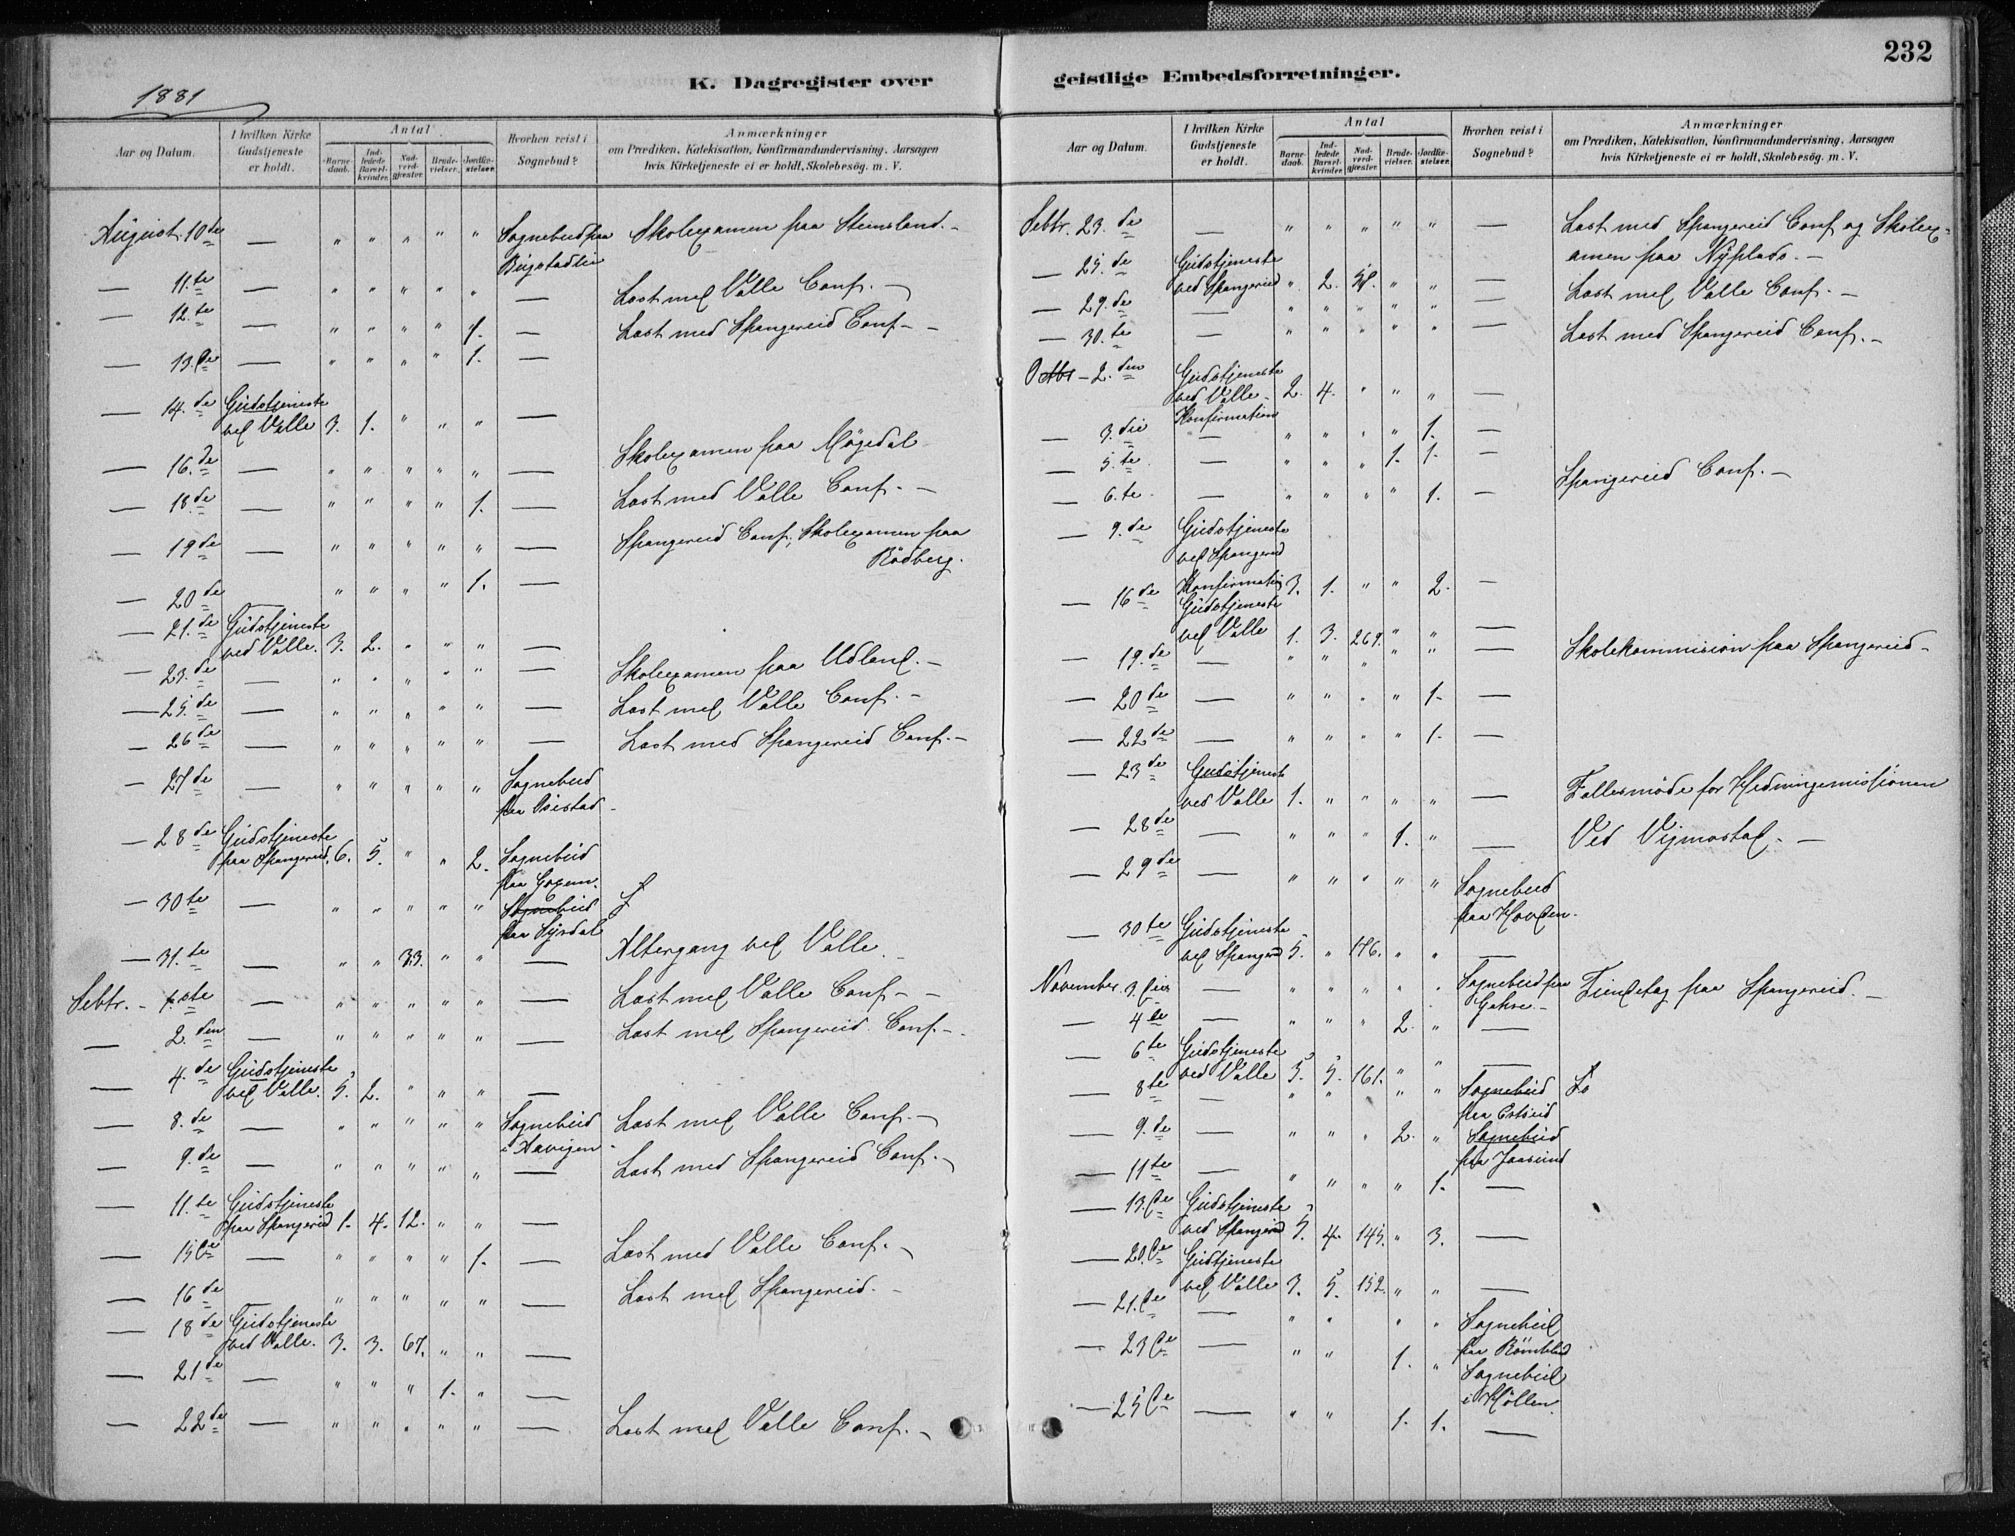 232
K. Dagregister over geistlige Embedsforretninger.
1881
Aar og Datum.
I hvilken Kirke Gudstjeneste er holdt.
Antal
Barnedaab.
Indledede Barselkvinder.
Nadverdgjæster.
Brudevielser.
Jordfæstelser.
Hvorhen reist i Sognebud?
Anmærkninger
om Prædiken, Katekisation, Konfirmandundervisning, Aarsagen
hvis Kirketjeneste ei er holdt, Skolebesøg. m. V.
August 10de — " " " " " Sognebud paa Skolexamen paa Steinsland. -
Bugstadlia
— 11.te — " " " " " — Læst med Valle Conf. -
— 12.te — " " " " 1. — Læst med Spangereid Conf - -
— 13.de — " " " " 1. —
— 14.de Gudstjeneste
ved Valle 3. 1. " " " —
— 16.de — " " " " " — Skolexamen paa Møgedal
— 18.de — " " " " 1. — Læst med Valle Conf. -
— 19de — " " " " " — Spangereid Conf; Skolexamen paa
Rödberg.
— 20de — " " " " 1. —
— 21.de Gudstjeneste
ved Valle. 3. 2. " " " —
— 23.de — " " " " " — Skolexamen paa Udland. -
— 25.de — " " " " " — Læst med Valle Conf. -
— 26de — " " " " " — Læst med Spangereid Conf. -
— 27de — " " " " " Sognebud
paa
— 28de Gudstjeneste
paa Spangereid. 6. 5. " " 2. Sognebud
paa
— 30te — " " " " " Sognebud
paa
— 31.te — " " 33. " " — Altergang ved Valle.
Sebtr. - 1.ste — " " " " " — Læst med Valle Conf - -
— 2.den — " " " " " — Læst med Spangereid Conf. -
— 4.de Gudstjeneste
ved Valle. 5. 2. " " " —
— 8.de — " " " " " Sognebud Læst med Valle Conf. -
i Havigen
— 9.de — " " " " " — Læst med Spangereid Conf. -
— 11.te Gudstjeneste
paa Spangereid 1. 4. 12. " " —
— 15de — " " " " 1. — Læst med Valle Conf. -
— 16de — " " " " " — Læst med Spangereid. -
— 18de Gudstjeneste
ved Valle. 3. 3. 67. " " —
— 21de — " " " 1. " —
— 22de — " " " " " — Læst med Valle Conf. -
Aar og Datum.
I hvilken Kirke Gudstjeneste er holdt.
Antal
Barnedaab.
Indledede Barselkvinder.
Nadverdgjæster.
Brudevielser.
Jordfæstelser.
Hvorhen reist i Sognebud?
Anmærkninger
om Prædiken, Katekisation, Konfirmandundervisning, Aarsagen
hvis Kirketjeneste ei er holdt, Skolebesøg. m. V.
Sebtr. 23.de — " " " " " — Læst med Spangereid Conf og Skolex-
amen paa Nyplads. -
— 25.de Gudstjeneste
ved Spangereid " 2. " " —
— 29.de — " " " " " — Læst med Valle Conf. -
— 30.te — " " " " " — Læst med Spangereid Conf. -
Octbr - 2.den Gudstjeneste
ved Valle - 2. 4. " " " —
Konfirmation
— 3.die — " " " " 1. —
— 5.te — " " " 1. 1. —
— 6.te. — " " " " 1. — Spangereid Conf. -
9.de Gudstjeneste
ved Spangereid
Konfirmation 3. 1. " " 2. —
— 16de Gudstjeneste
ved Valle 1. 3. 269. " " —
— 19.de — " " " " " — Skolekommission paa Spangereid -
— 20de — " " " " 1. —
— 22de — " " " " 1. —
— 23de Gudstjeneste
ved Valle 1. " " " " — Fællesmøde for Hedningemissionen
— 28de — " " " 1. " — Ved Vigmostad. -
— 29de — " " " " " Sognebud
paa Hovden.
— 30te Gudstjeneste
ved Spangereid 5. " 176. " " —
November 3.die — " " " " " Sognebud paa Tiendetag paa Spangereid. -
Gahre. -
— 4de — " " " 2. " —
— 6te Gudstjeneste
ved Valle 5. 5. 161. " " —
— 8te — " " " " Sognebud
paa
— 9.de — " " " 2. " Sognebud
paa Jaasund
— 11te — " " " " 1. —
— 13.de Gudstjeneste
ved Spangereid 5. 4. 145. " 3. —
— 20.de Gudstjeneste
ved Valle 3. 5. 152. " " —
— 21.de — " " " " Sognebud
paa
— 23de — " " 1. " Sognebud
i Höllen.
— 25de — " " 1. 1. —